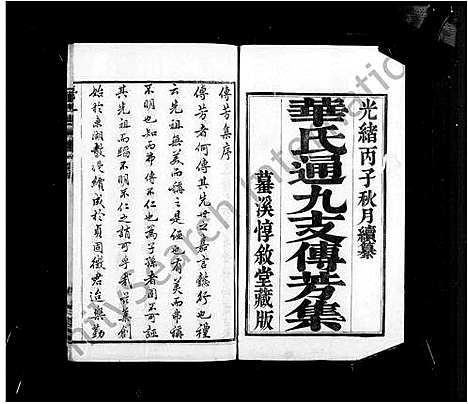 光緒丙子秋月續纂
華氏通九支傳芳集
蕓溪惇敘堂藏版
傳芳集序
傳芳者何傳其先世之嘉言懿行也禮
云先祖無美而稱之是誣也有美而弗稱
不明也知而弗傳不仁也為子孫者固不可誣
其先祖而蹈不明不仁之誚可乎哉集創
始於東湖數傳續成於貞固徵君迨無勤